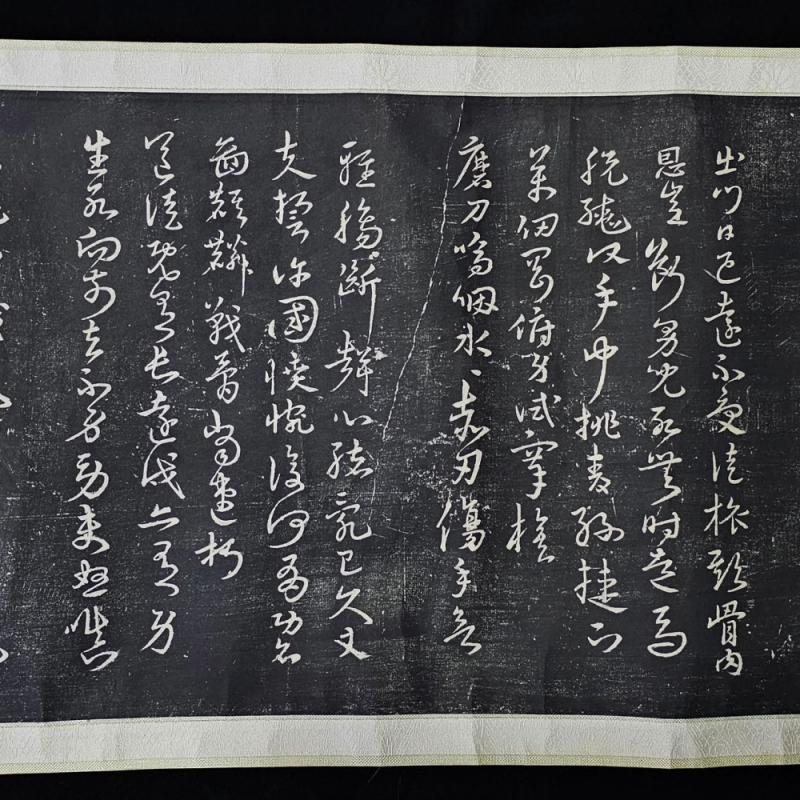 出門日已遠不受徒旅欺骨肉
恩豈斷男兒死無時走馬
脫轡頭手中挑青絲捷下
萬仞岡俯身試搴旗
磨刀嗚咽水〻赤刃傷手欲
輕腸斷聲心緒亂已久丈
夫誓許國憤惋復何有功名
圖麒麟戰骨當速朽
送徒既有長遠戍亦有身
生死向前去不勞吏怒嗔